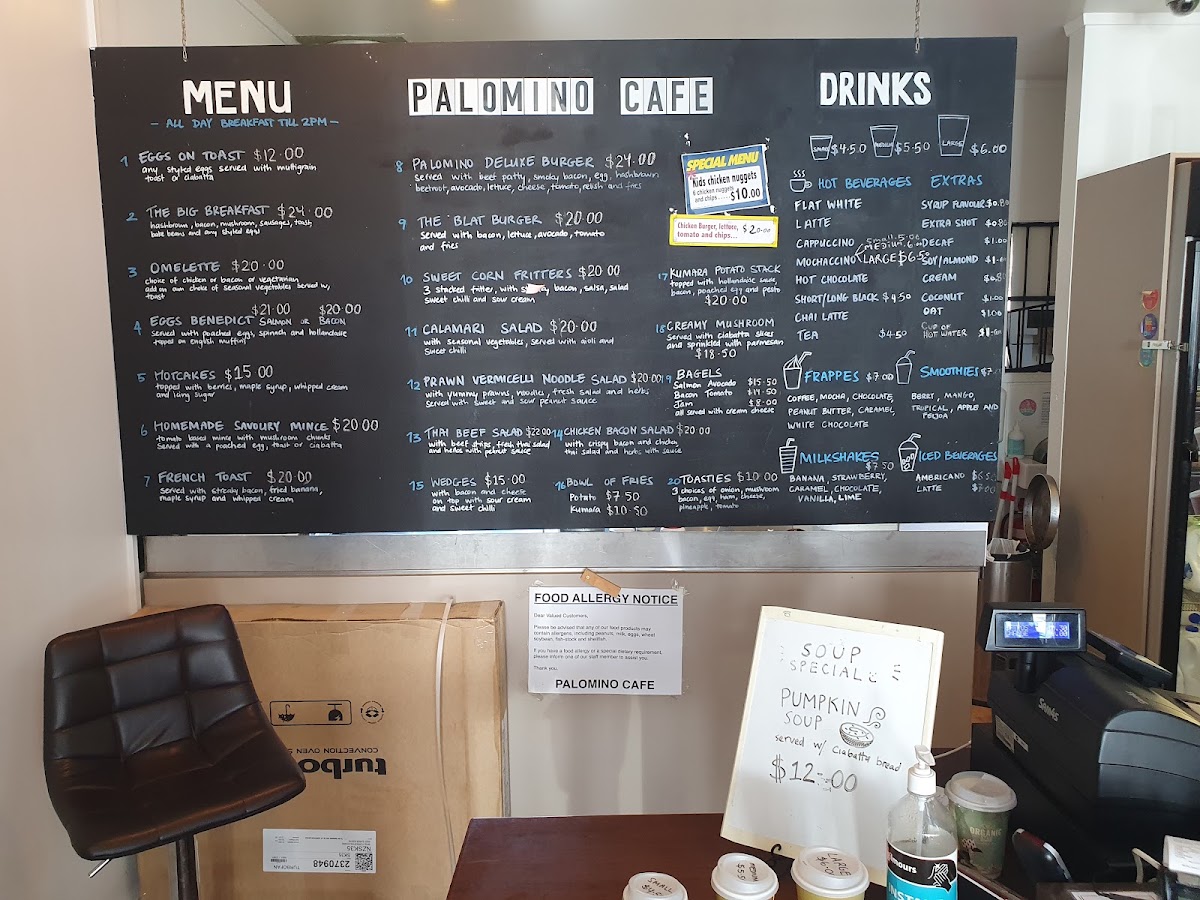 MENU
- ALL DAY BREAKFAST TILL 2PM -
1 EGGS ON TOAST $12.00
any styled eggs served with multigrain
toast or ciabatta
2 THE BIG BREAKFAST $24.00
hashbrown, bacon, mushroom, sausages, toast,
bake beans and any styled egg
3 OMELETTE $20.00
choice of chicken or bacon or vegetarian
add on own choice of seasonal vegetables served w/
toast
$21.00 $20.00
4 EGGS BENEDICT SALMON OR BACON
served with poached eggs, spinach and hollandaise
topped on english muffin
5 HOTCAKES $15.00
topped with berries, maple syrup, whipped cream
and icing sugar
6 HOMEMADE SAVOURY MINCE $20.00
tomato based mince with mushroom chunks
served with a poached egg, toast or ciabatta
7 FRENCH TOAST $20.00
served with streaky bacon, fried banana,
maple syrup and whipped cream
PALOMINO CAFE
8 PALOMINO DELUXE BURGER $24.00
served with beef patty, smokey bacon, egg, hashbrown
beetroot, avocado, lettuce, cheese, tomato, relish and fries
9 THE BLAT BURGER $20.00
served with bacon, lettuce, avocado, tomato
and fries
10 SWEET CORN FRITTERS $20.00
3 stacked fritter, with bacon, salsa, salad
sweet chilli and sour cream
11 CALAMARI SALAD $20.00
with seasonal vegetables, served with aioli and
sweet chilli
12 PRAWN VERMICELLI NOODLE SALAD $20.00
with yummy prawns, noodles, fresh salad and herbs
served with sweet and sour peanut sauce
13 THAI BEEF SALAD $22.00
with beef strips, fresh thai salad
and herbs with peanut sauce
14 CHICKEN BACON SALAD $20.00
with crispy bacon and chicken,
thai salad and herbs with sauce
15 WEDGES $15.00
with bacon and cheese
on top with sour cream
and sweet chilli
16 BOWL OF FRIES
Potato $7.50
Kumara $10.50
SPECIAL MENU
Kids chicken nuggets
6 chicken nuggets
and chips...... $10.00
Chicken Burger, lettuce,
tomato and chips... $20.00
17 KUMARA POTATO STACK
topped with hollandaise sauce,
bacon, poached egg and pesto
$20.00
18 CREAMY MUSHROOM
Served with ciabatta slices
and sprinkled with parmesan
$18.50
19 BAGELS
Salmon Avocado $15.50
Bacon Tomato $14.50
Jam $8.00
all served with cream cheese
20 TOASTIES $10.00
3 choices of onion, mushroom
bacon, egg, ham, cheese,
pineapple, tomato
DRINKS
SMALL $4.50 MEDIUM $5.50 LARGE $6.00
HOT BEVERAGES
FLAT WHITE
LATTE
CAPPUCCINO
MOCHACCINO
small 5.00
MEDIUM 6.00
LARGE $6.50
HOT CHOCOLATE
SHORT/LONG BLACK $4.50
CHAI LATTE
TEA $4.50
EXTRAS
SYRUP FLAVOUR $0.80
EXTRA SHOT $0.80
DECAF $1.00
SOY/ALMOND
CREAM
COCONUT $1.00
OAT $1.00
CUP OF
HOT WATER
FRAPPES $7.00
COFFEE, MOCHA, CHOCOLATE,
PEANUT BUTTER, CARAMEL,
WHITE CHOCOLATE
SMOOTHIES
BERRY, MANGO,
TROPICAL, APPLE AND
FEIJOA
MILKSHAKES
$7.50
BANANA, STRAWBERRY,
CARAMEL, CHOCOLATE,
VANILLA, LIME
ICED BEVERAGES
AMERICANO
LATTE
FOOD ALLERGY NOTICE
Dear Valued Customers,
Please be advised that any of our food products may
contain allergens, including peanuts, milk, eggs, wheat
soybean, fish-stock and shellfish.
If you have a food allergy or a special dietary requirement,
please inform one of our staff member to assist you.
Thank you.
PALOMINO CAFE
SOUP
SPECIALS
PUMPKIN
SOUP
served w/ ciabatta bread
$12.00
turbo
CONVECTION OVEN
NZSK35
2370948
Sam4s
ORGANIC
SMALL
$4.50
MEDIUM
$5.50
LARGE
$6.00